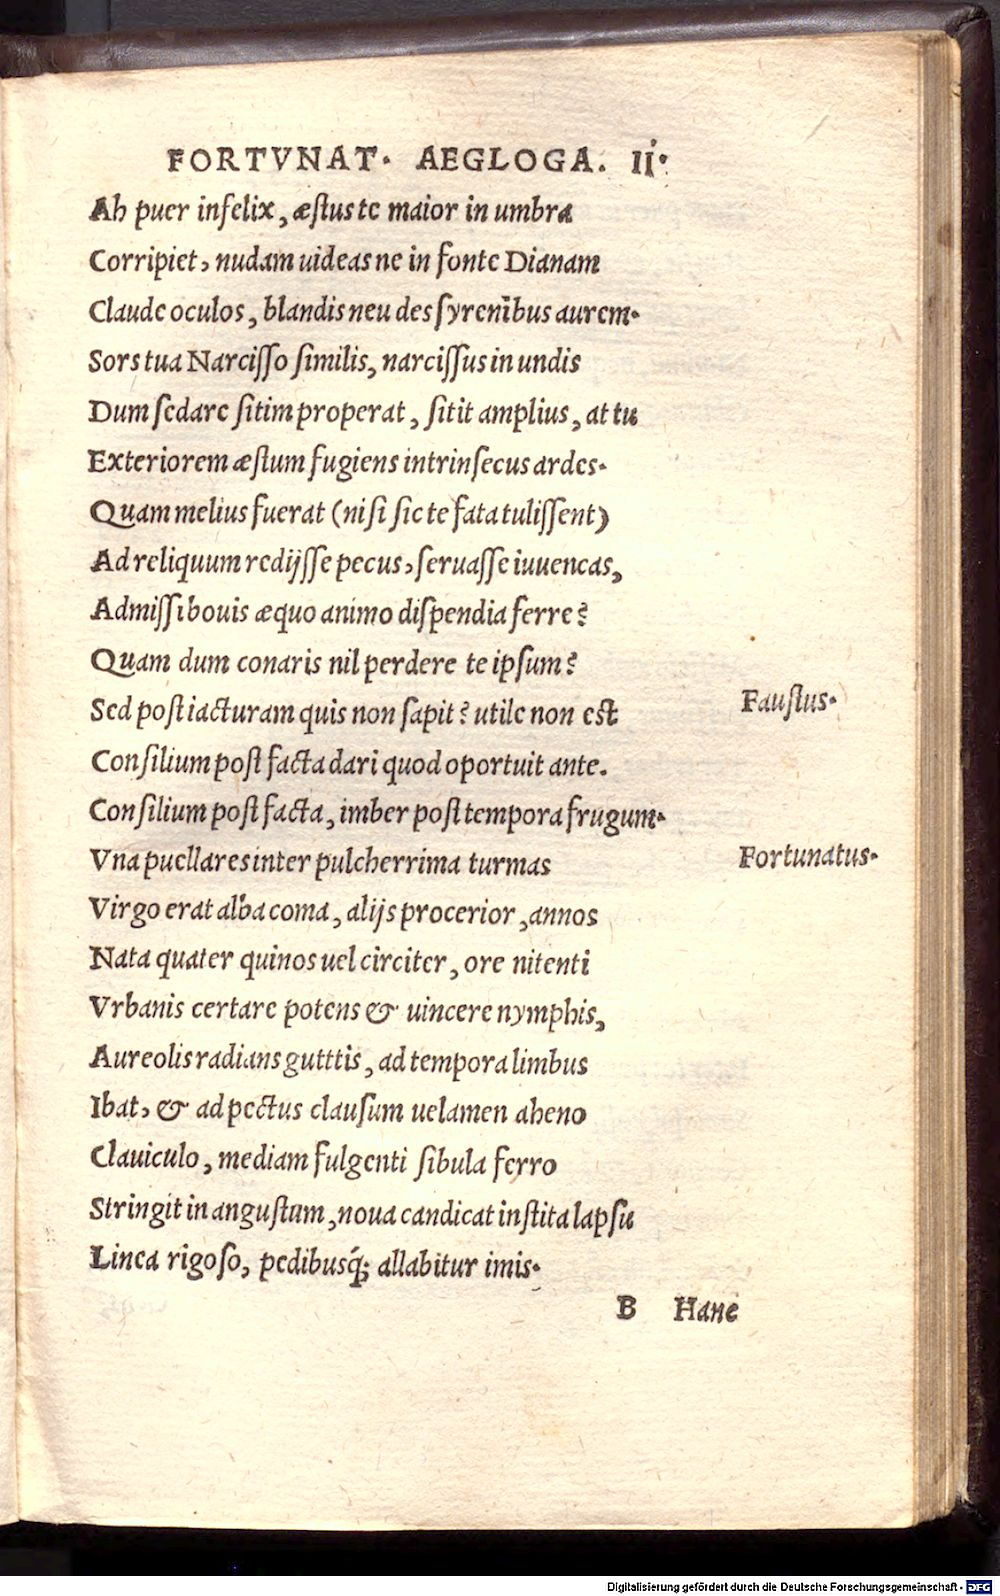 FORTVNAT. AEGLOGA. II.
Ah puer infelix, æſtus te maior in umbra
Corripiet, nudam uideas ne in fonte Dianam
Claude oculos, blandis neu des ſyrenibus aurem.
Sors tua Narciſſo ſimilis, narciſſus in undis
Dum ſedare ſitim properat, ſitit amplius, at tu
Exteriorem æſtum fugiens intrinſecus ardes.
Quam melius fuerat (niſi ſic te fata tuliſſent)
Ad reliquum redijſſe pecus, ſeruaſſe iuuencas,
Admiſſi bouis æquo animo diſpendia ferre?
Quam dum conaris nil perdere te ipſum?
Sed poſt iacturam quis non ſapit? utile non eſt
Faustus.
Conſilium poſt facta dari quod oportuit ante.
Conſilium poſt facta, imber poſt tempora frugum.
Vna puellares inter pulcherrima turmas
Fortunatus.
Virgo erat alba coma, alijs procerior, annos
Nata quater quinos uel circiter, ore nitenti
Vrbanis certare potens & uincere nymphis,
Aureolis radians gutttis, ad tempora limbus
Ibat, & ad pectus clauſum uelamen aheno
Clauiculo, mediam fulgenti ſibula ferro
Stringit in anguſtum, noua candicat inſtita lapſu
Linea rigoſo, pedibusq́; allabitur imis.
B Hane